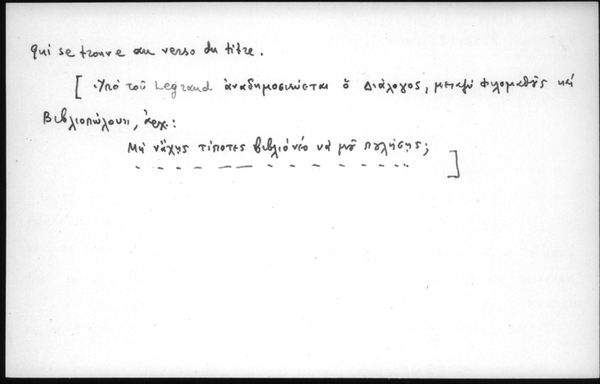 qui se trouve au verso du titre.
[ Ὑπὸ τοῦ Legrand ἀναδημοσιεύεται ὁ Διάλογος, μεταξὺ Φιλομαθοῦς καὶ
Βιβλιοπώλου, ἀρχ.:
Μὴ νἄχῃς τίποτες βιβλιὸ νέο νὰ μοῦ πουλήσῃς;
- - - - - - - - - - - - ]